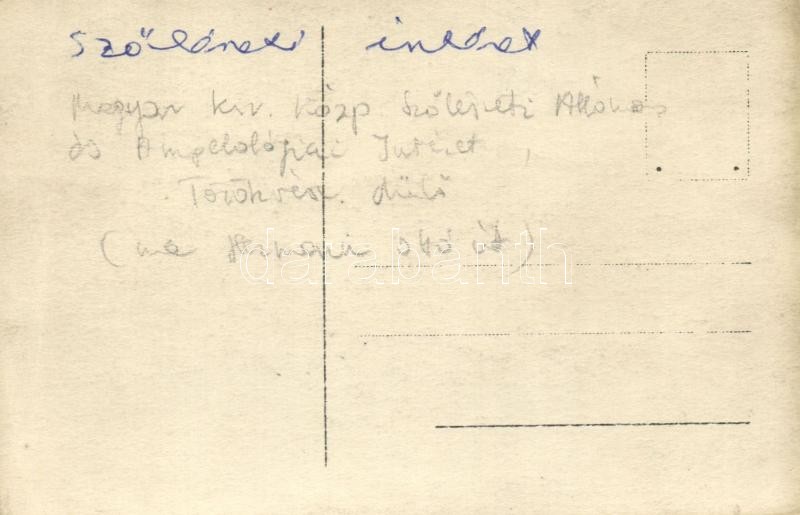 Szőlészeti intézet
Magyar kir. közp. Szőlészeti Állomás
és Ampelológiai Intézet,
Törökvész. dűlő
(ma Herman Ottó út)
darabanth